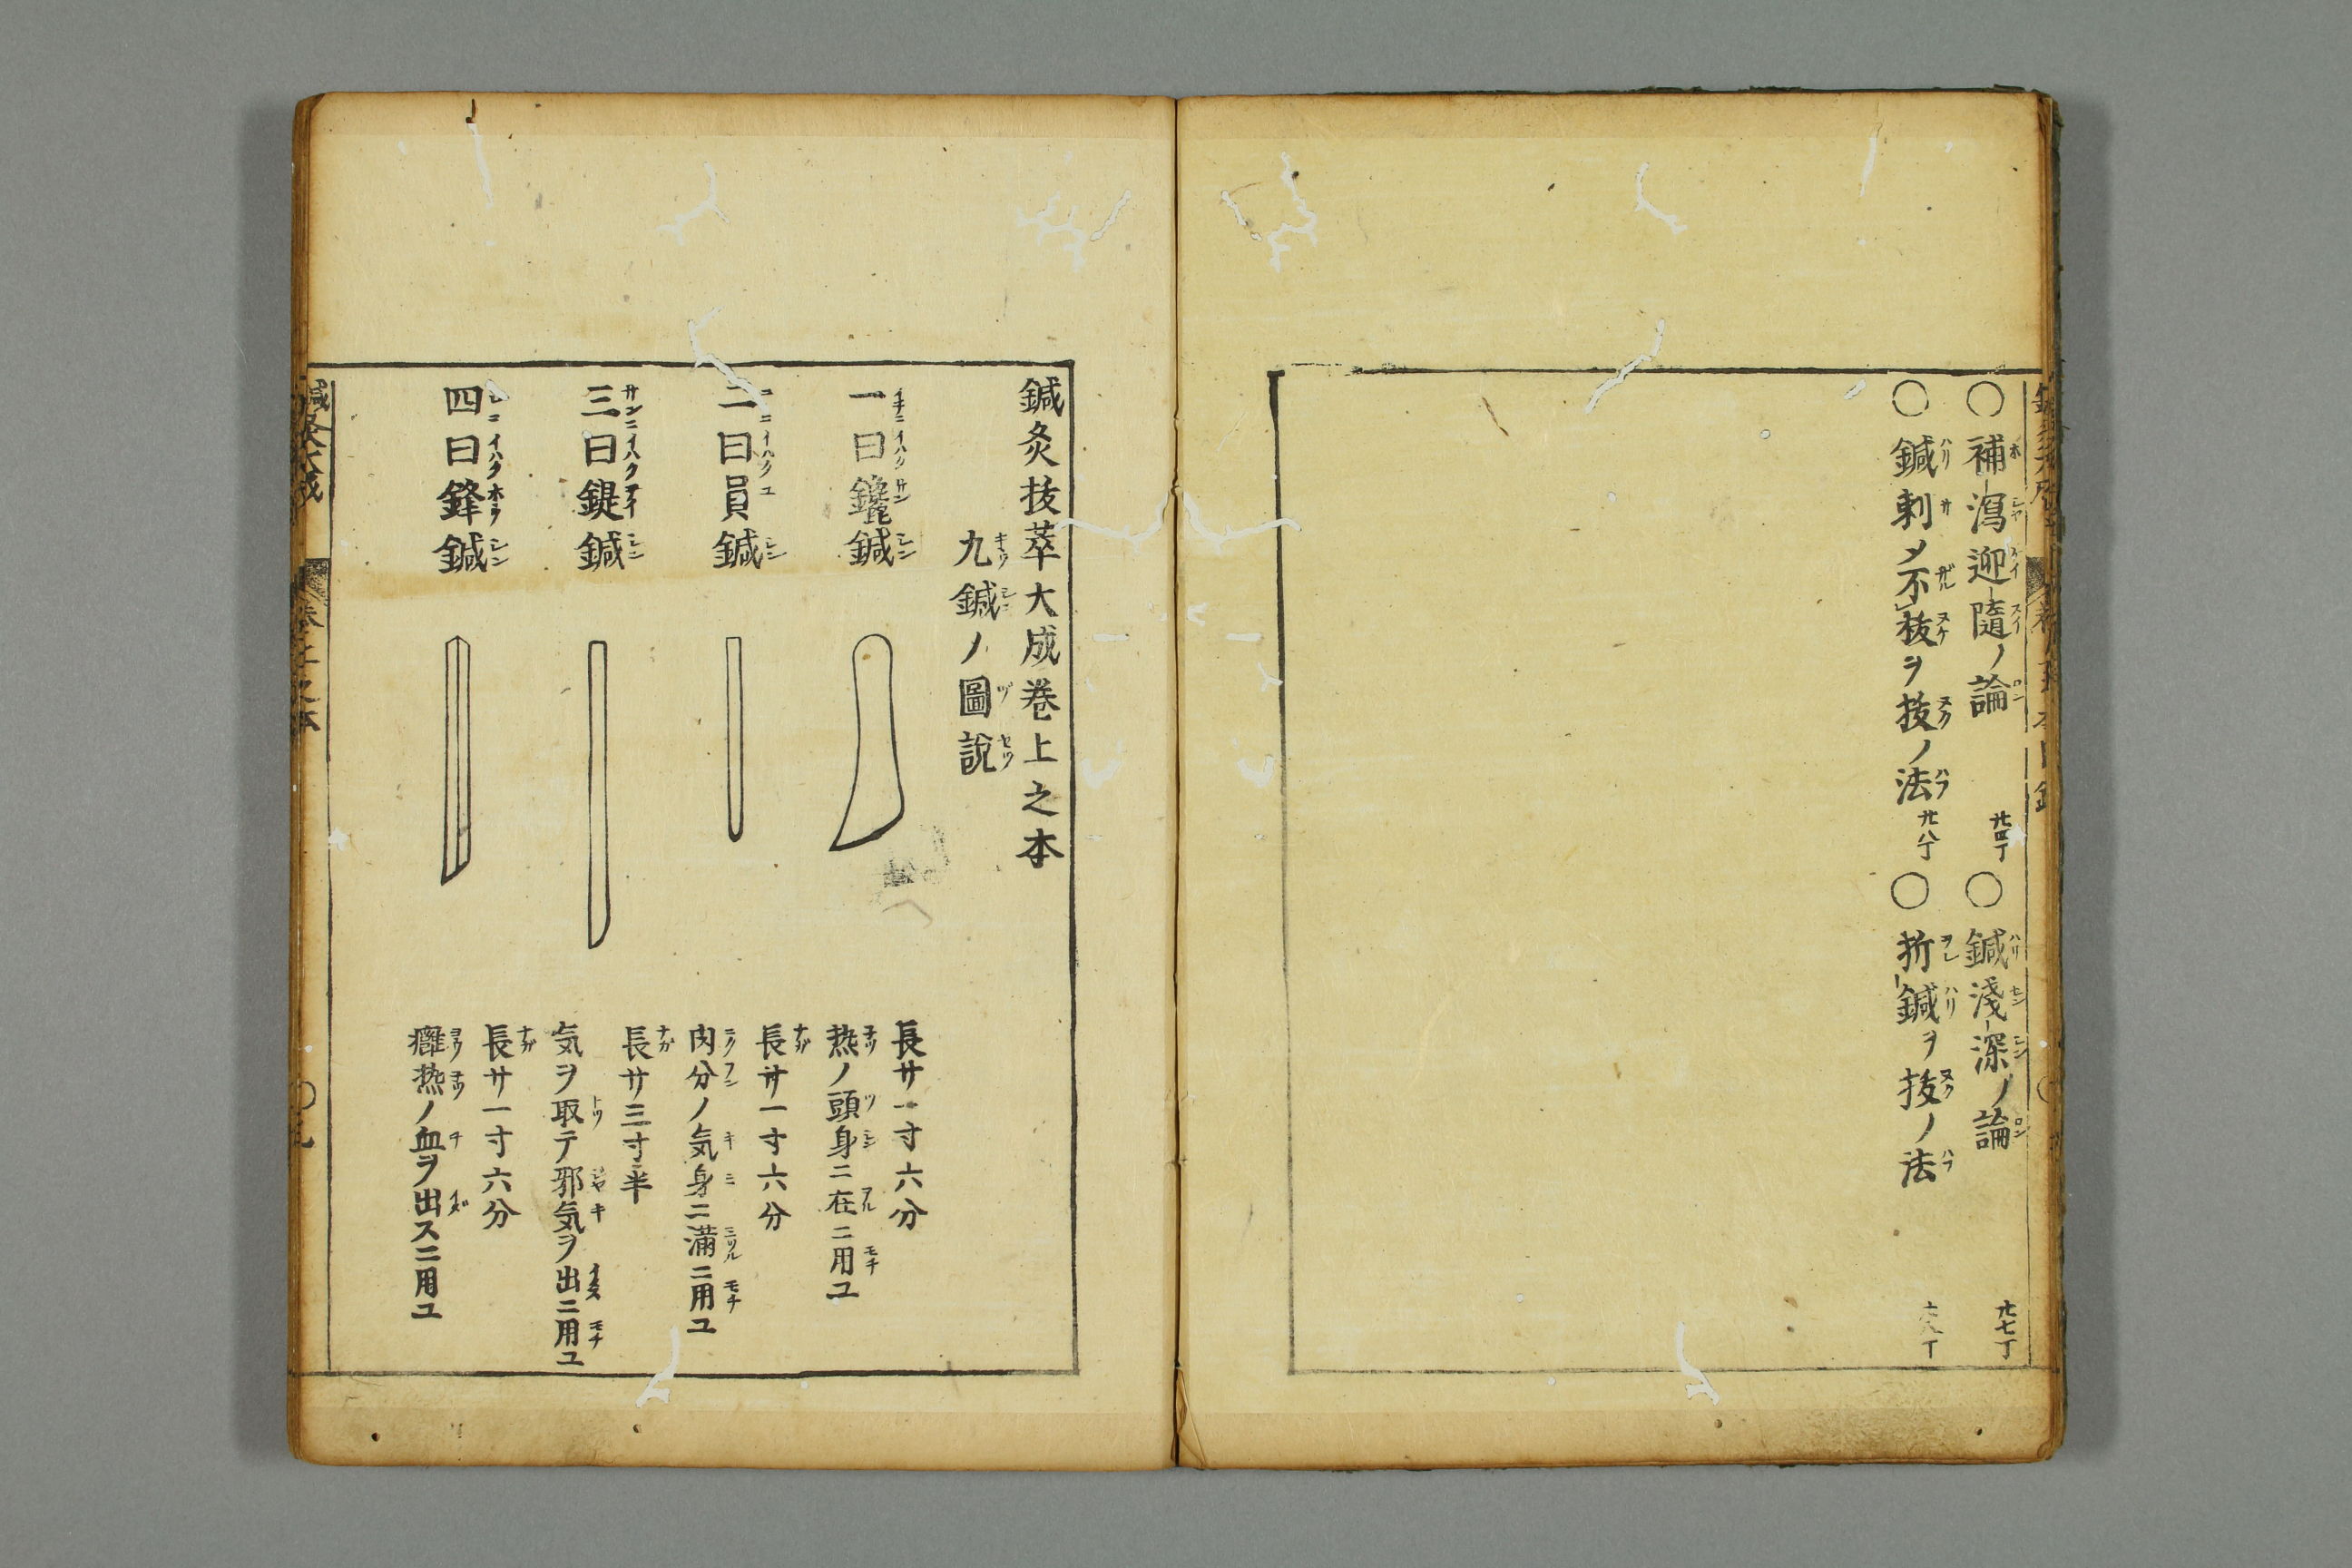 ○補瀉迎隨ノ論 廿四丁 ○鍼淺深ノ論 廿七丁
○鍼刺メ不抜ヲ抜ノ法 廿八丁 ○折鍼ヲ抜ノ法
鍼灸抜萃大成巻上之本
九鍼ノ圖說
一曰鑱鍼
長サ一寸六分
熱ノ頭身ニ在ニ用ユ
二曰員鍼
長サ一寸六分
肉分ノ気身ニ満ニ用ユ
三曰鍉鍼
長サ三寸半
気ヲ取テ邪気ヲ出ニ用ユ
四曰鋒鍼
長サ一寸六分
癰熱ノ血ヲ出スニ用ユ